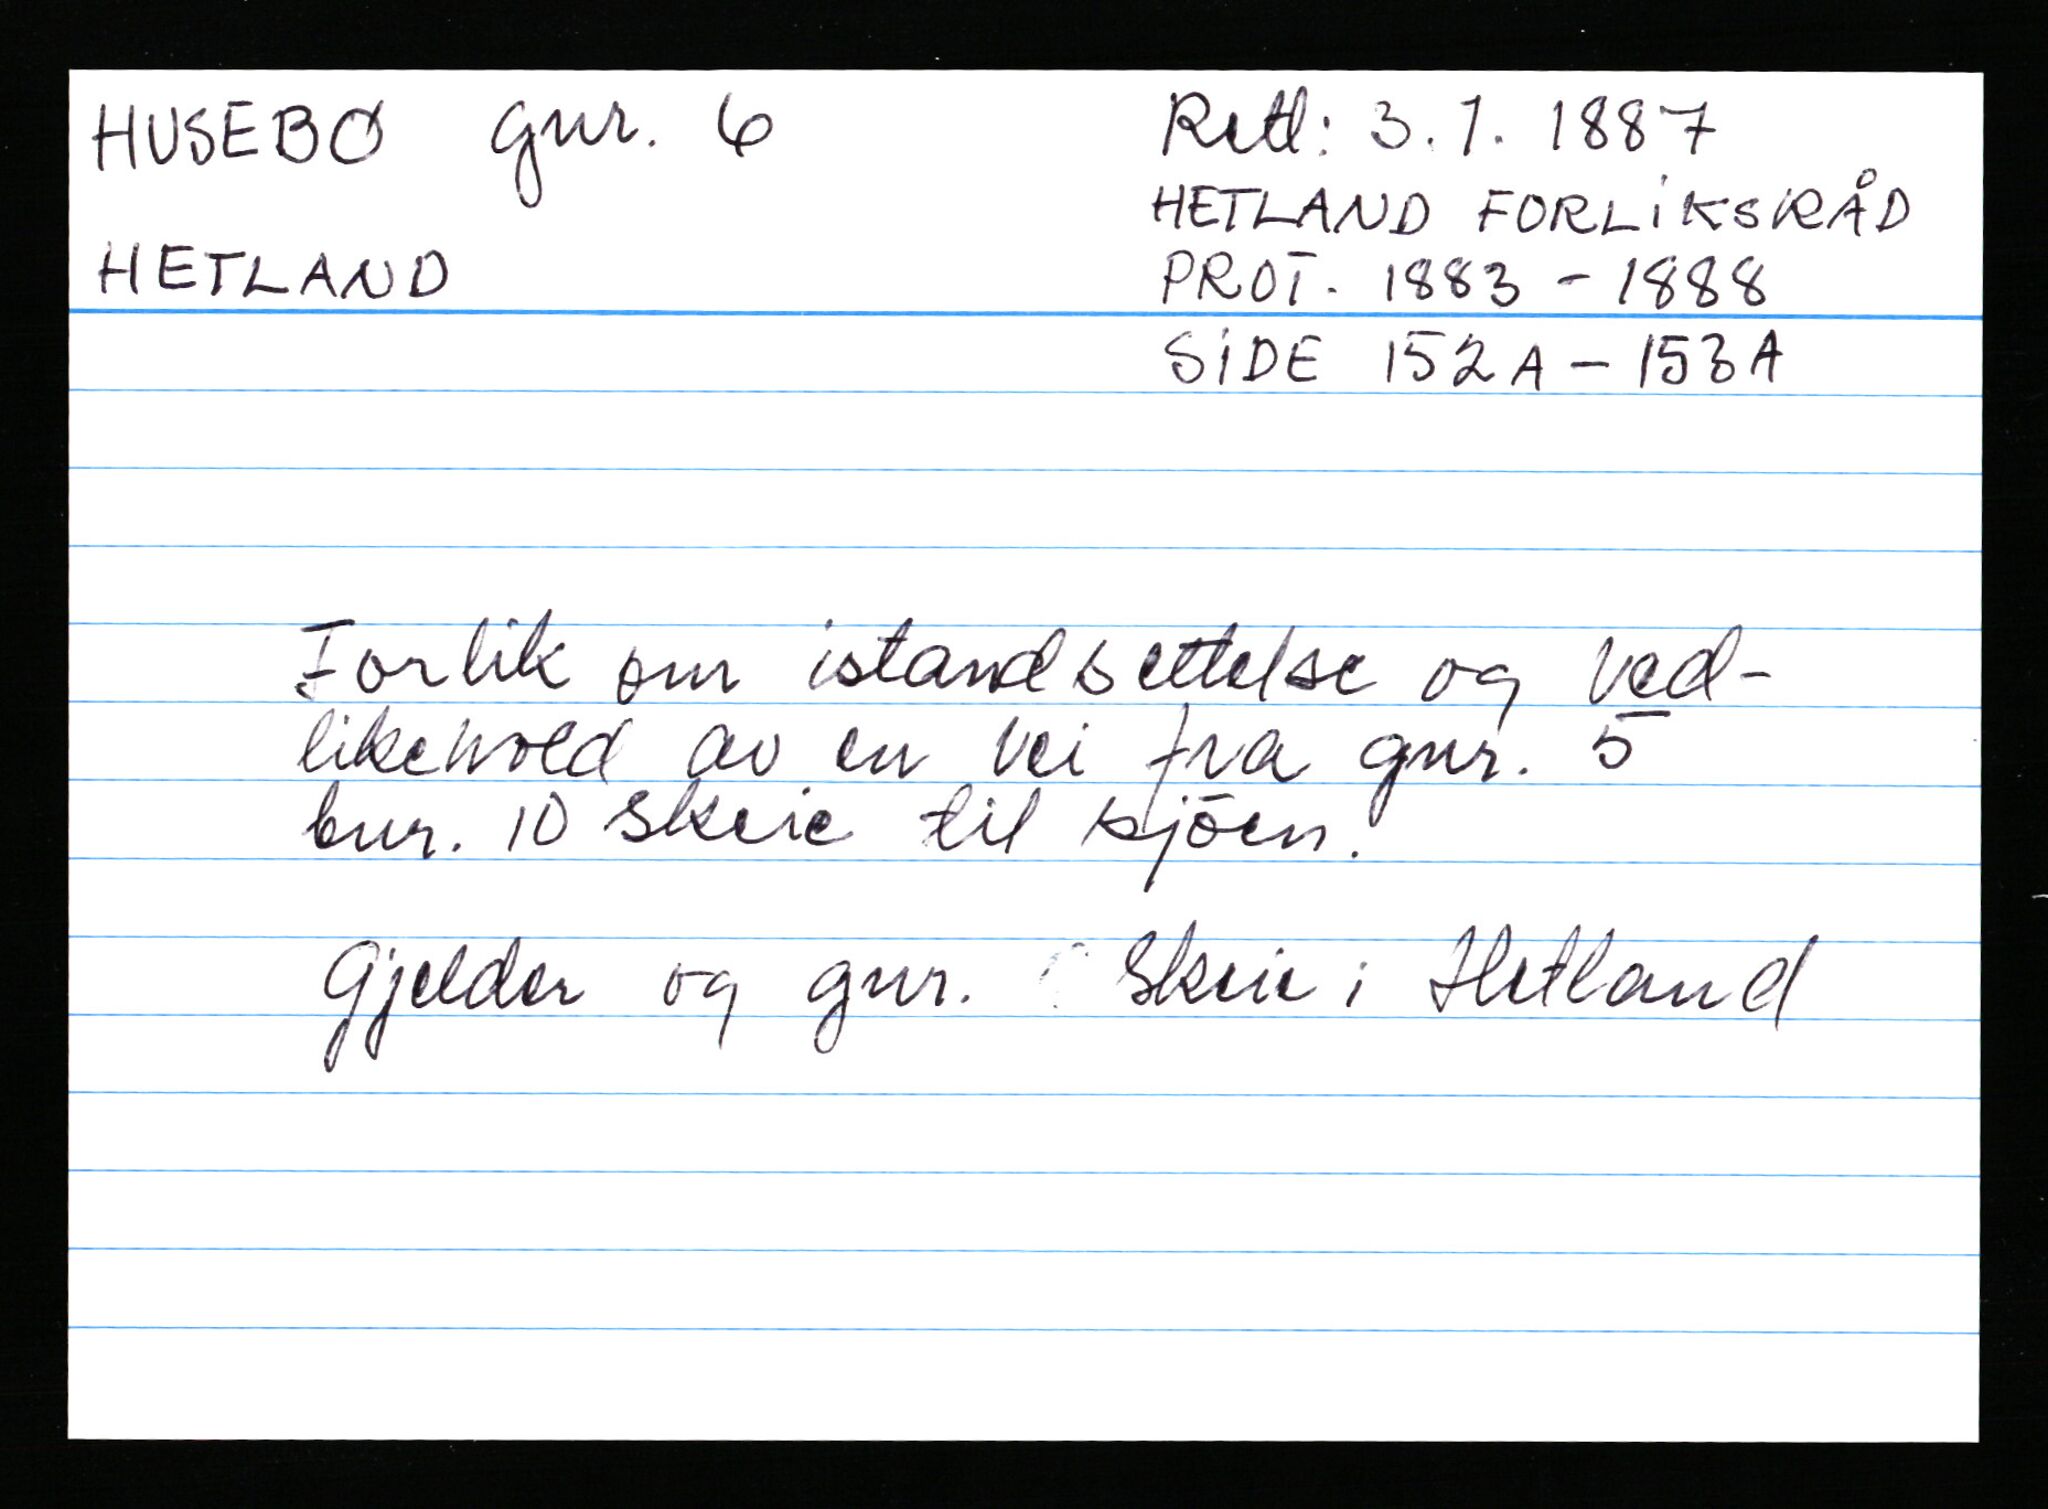 HUSEBØ gnr. 6
HETLAND
Retl: 3.1.1887
HETLAND FORLIKSRÅD
PROT. 1883 - 1888
SIDE 152A - 153A
Forlik om istandsettelse og ved-
likehold av en vei fra gnr. 5
bnr. 10 Skeie til sjöen.
Gjelder og gnr. Skeie i Hetland